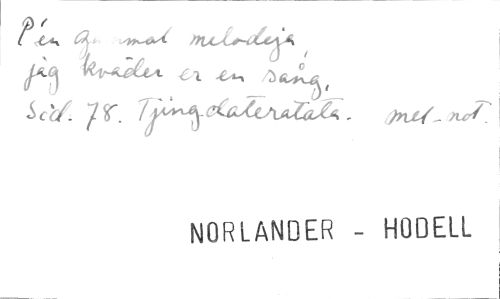 P'én gammal melodija,
jag kväder er en sång,
Sid. 78. Tjing-dateratata. mel-not.
NORLANDER - HODELL